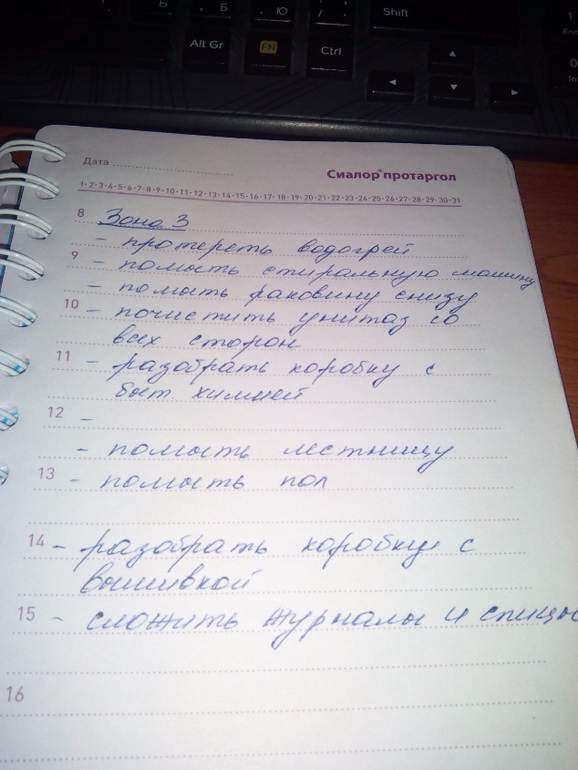 Б Ю
Shift
Alt Gr FN Ctrl
Дата
Сиалор®протаргол
1•2•3•4•5•6•7•8•9•10•11•12•13•14•15•16•17•18•19•20•21•22•23•24•25•26•27•28•29•30•31
8 Зона 3
- протереть водогрей
9 - помыть стиральную машину
- помыть раковину снизу
10 - почистить унитаз со
всех сторон
11 - разобрать коробку с
быт химией
12 -
- помыть лестницу
13 - помыть пол
14 - разобрать коробку с
вышивкой
15 - сложить журналы и спицы
16